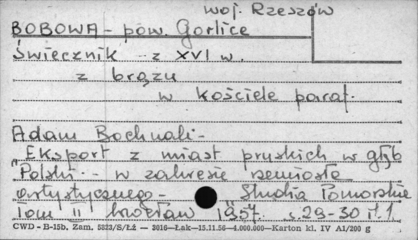 woj. Rzeszów
BOBOWA - pow. Gorlice
Świecznik z XVI w.
z brązu
w kościele paraf.
Adam Bochnak -
Eksport z miast pruskich w głąb
Polski - w zakresie rzemiosła
artystycznego - Studia Pomorskie
Tom II Wrocław 1957. s. 29-30 il. 1
CWD - B-15b, Zam. 5823/S/Łż — 3016—Łak—13.11.56—4.000.000—Karton kl. IV A1/200 g